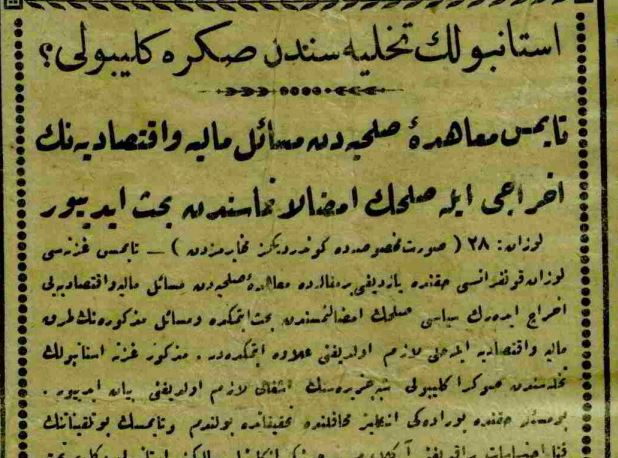 استانبولك تخليه سندن صكره كليبولی؟
تايمس معاهدۀ صلحيه دن مسائل ماليه واقتصاديه نك
اخراجی ايله صلحك امضالانماسندن بحث ايدييور
لوزان: ٢٨ ( صورت مخصوصه ده كوندرديكمز مخابرمزدن ) — تايمس غزته سی
لوزان قونفرانسی حقنده يازديغی بر مقاله ده معاهدۀ صلحيه دن مسائل ماليه واقتصاديه يی
اخراج ايده رك سياسی صلحك امضا ايتمسندن بحث ايتمكده ومسائل مذكوره نك طرق
ماليه واقتصاديه ايله حلی لازم اولديغنی علاوه ايتمكده در . مذكور غزته استانبولك
تخليه سندن صوكرا كليبولی شبه جزيره سنك اشغالی لازم اولديغنی بيان ايدييور .
بو مسئله حقنده بوراده كی انكليز محافلنده تحقيقاتده بولندم وتايمسك بو تلقيناتنك